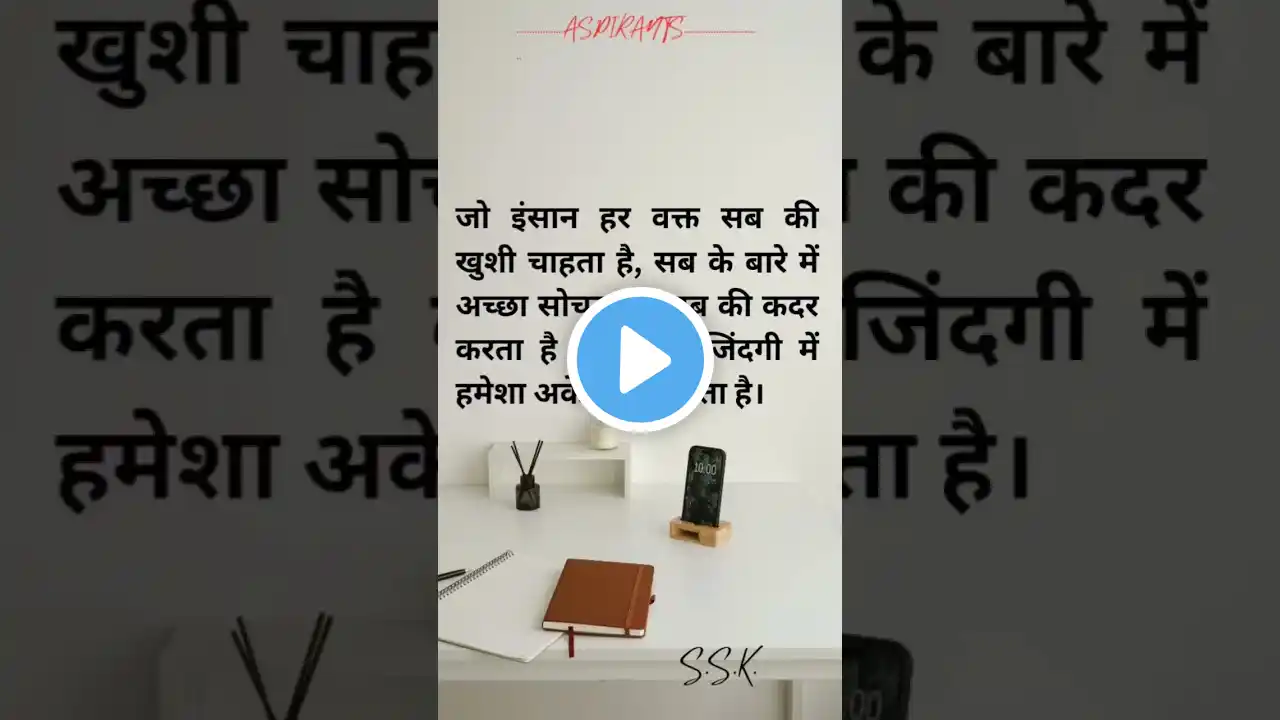 ASPIRANTS
जो इंसान हर वक्त सब की
खुशी चाहता है, सब के बारे में
अच्छा की कदर
करता है जिंदगी में
हमेशा है।
10:00
S.S.K.